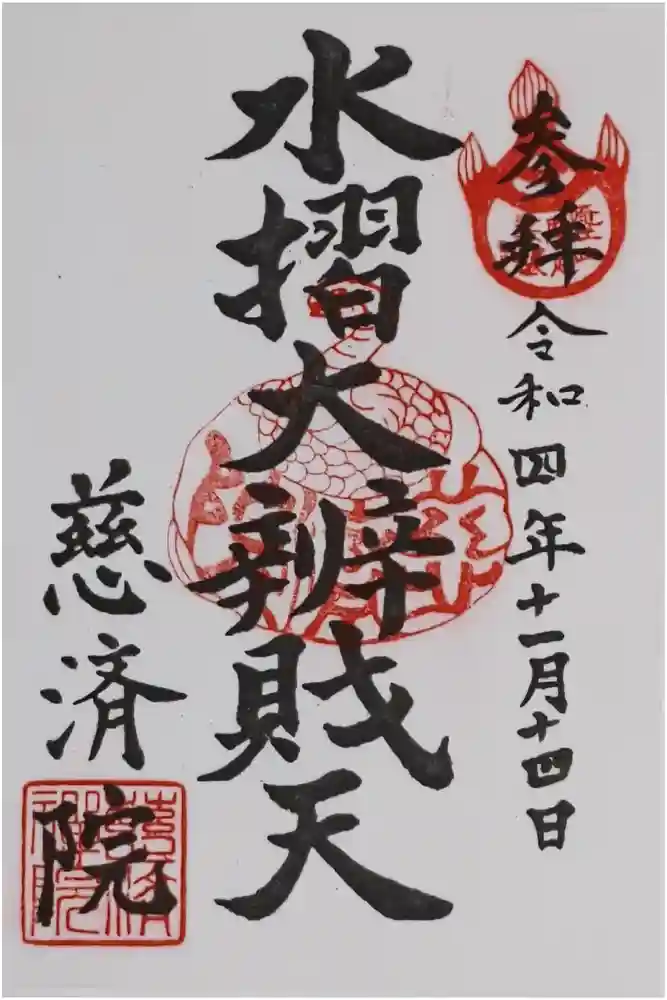 参拝
令和四年十一月十四日
水摺大辨財天
慈済
院